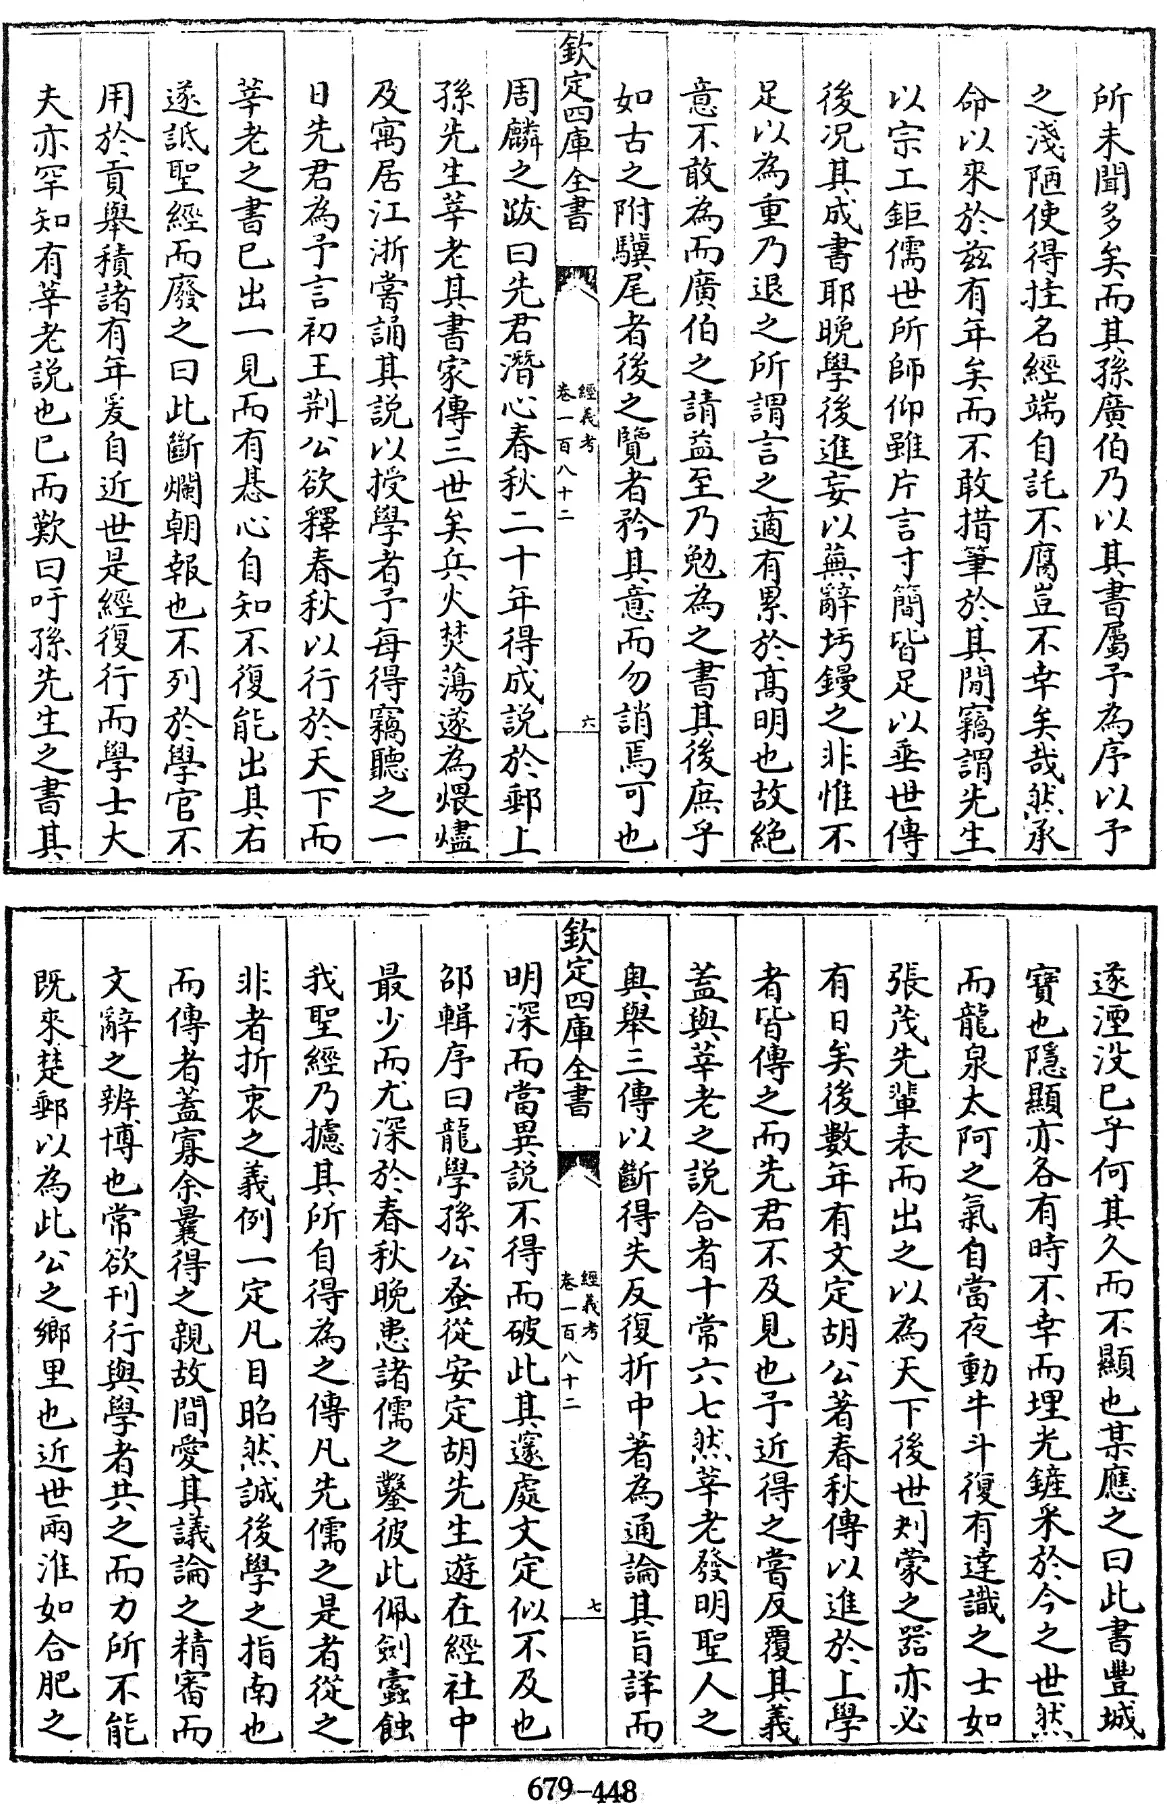 所未聞多矣而其孫廣伯乃以其書屬予為序以予
之淺陋使得挂名經端自託不腐豈不幸矣哉然承
命以來於兹有年矣而不敢措筆於其閒竊謂先生
以宗工鉅儒世所師仰雖片言寸簡皆足以垂世傳
後况其成書耶晚學後進妄以蕪辭圬鏝之非惟不
足以為重乃退之所謂言之適有累於髙明也故絶
意不敢為而廣伯之請益至乃勉為之書其後庶乎
如古之附驥尾者後之覽者矜其意而勿誚焉可也
欽定四庫全書
經義考
卷一百八十二
六
周麟之跋曰先君潛心春秋二十年得成説於郵上
孫先生莘老其書家傳三世矣兵火焚蕩遂為煨燼
及寓居江浙嘗誦其説以授學者予每得竊聽之一
日先君為予言初王荆公欲釋春秋以行於天下而
莘老之書已出一見而有惎心自知不復能出其右
遂詆聖經而廢之曰此斷爛朝報也不列於學官不
用於貢舉積諸有年爰自近世是經復行而學士大
夫亦罕知有莘老説也已而歎曰吁孫先生之書其
遂湮没已乎何其久而不顯也某應之曰此書豐城
寶也隱顯亦各有時不幸而埋光鏟采於今之世然
而龍泉太阿之氣自當夜動牛斗復有達識之士如
張茂先輩表而出之以為天下後世刓蒙之器亦必
有日矣後數年有文定胡公著春秋傳以進於上學
者皆傳之而先君不及見也予近得之嘗反覆其義
蓋與莘老之説合者十常六七然莘老發明聖人之
奥舉三傳以斷得失反復折中著為通論其旨詳而
欽定四庫全書
經義考
卷一百八十二
七
明深而當異説不得而破此其邃處文定似不及也
邵輯序曰龍學孫公蚤從安定胡先生遊在經社中
最少而尤深於春秋晚患諸儒之鑿彼此佩劍蠧蝕
我聖經乃攄其所自得為之傳凡先儒之是者從之
非者折衷之義例一定凡目昭然誠後學之指南也
而傳者蓋寡余曩得之親故間愛其議論之精審而
文辭之辨博也常欲刊行與學者共之而力所不能
既來楚郵以為此公之鄉里也近世兩淮如合肥之
679-448